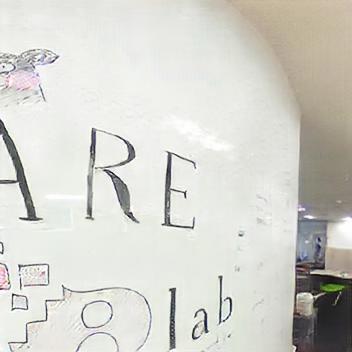 ARE
lab